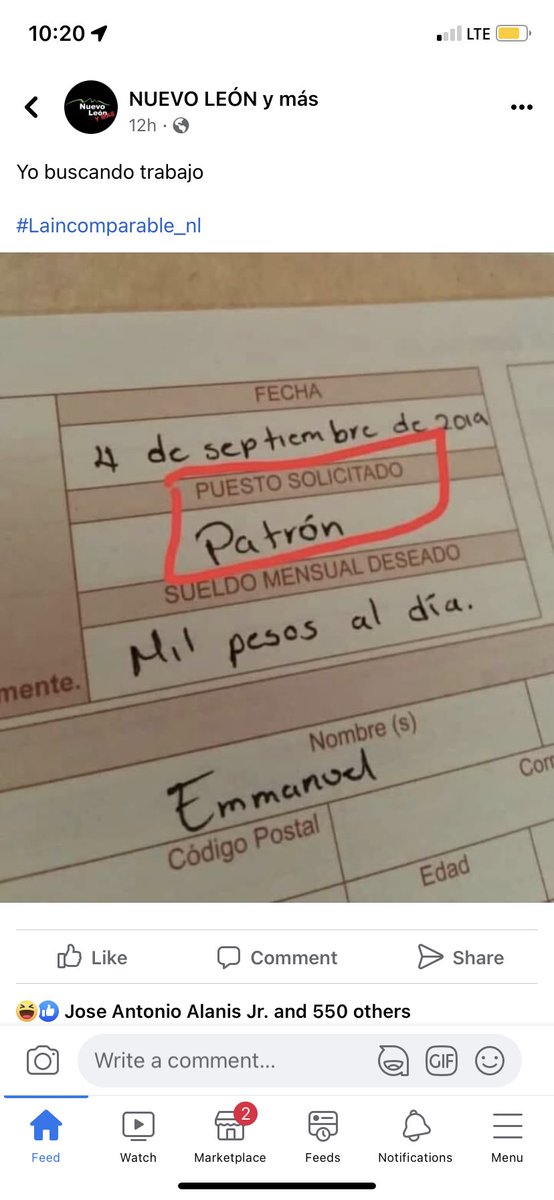 10:20
LTE
NUEVO LEÓN y más
12h
Yo buscando trabajo
#Laincomparable_nl
FECHA
4 de septiembre de 2019
PUESTO SOLICITADO
Patrón
SUELDO MENSUAL DESEADO
Mil pesos al día.
mente.
Nombre (s)
Emmanuel
Código Postal
Edad
Like
Comment
Share
Jose Antonio Alanis Jr. and 550 others
Write a comment...
GIF
2
Feed
Watch
Marketplace
Feeds
Notifications
Menu